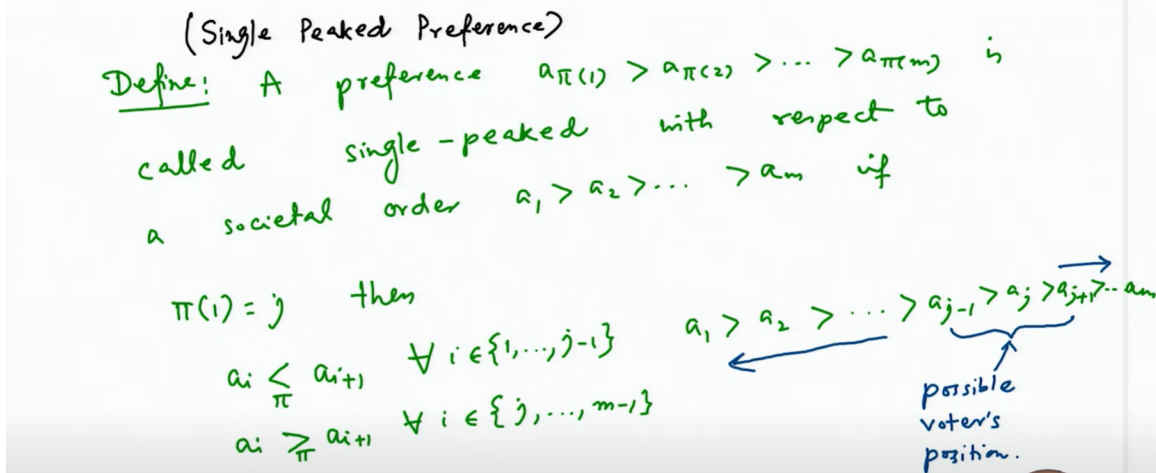 (Single Peaked Preference)
Define: A preference a_π(1) > a_π(2) > ... > a_π(m) is
called single-peaked with respect to
a societal order a_1 > a_2 > ... > a_m if
π(1) = j then
a_i <_π a_i+1 ∀ i ∈ {1,...,j-1}
a_i ≥_π a_i+1 ∀ i ∈ {j,...,m-1}
a_1 > a_2 > ... > a_j-1 > a_j > a_j+1 > .. a_m
possible
voter's
position.